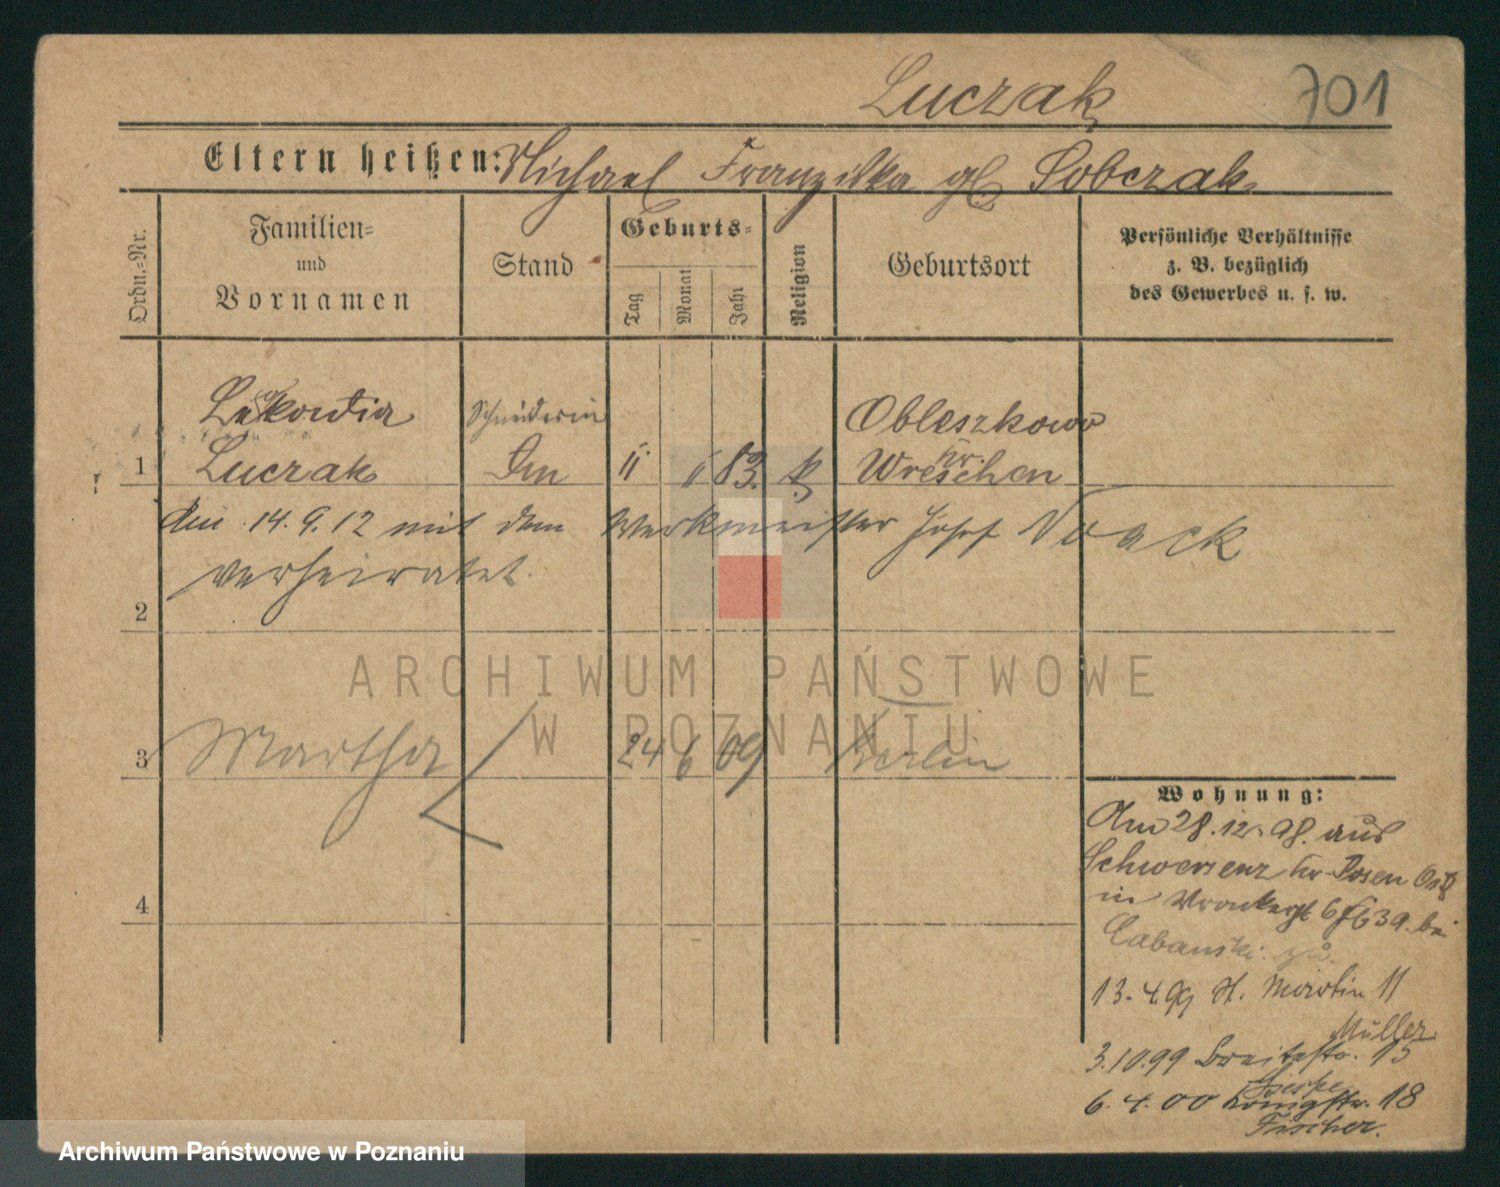 Luczak 701
Eltern heißen: Michael Franziska gb Sobczak
Ordn.-Nr.
Familien-
und
Vornamen
Stand
Geburts-
Tag
Monat
Jahr
Religion
Geburtsort
Persönliche Verhältnisse
z. B. bezüglich
des Gewerbes u. s. w.
Schneiderin
1 Luczak
11 83. k
Wreschen
Am 14. 9. 12 mit dem Werkmeister Josef Noack
verheiratet.
2
ARCHIWUM PAŃSTWOWE
W POZNANIU
3 Martha 24 6 09 Berlin
4
Wohnung:
Am 28. 12. 98. aus
Schwersenz Kr. Posen Ost
in 39. bei
Cabanski
13. 4. 99 St. Martin 11
Müller
3. 10. 99 Breitestr. 15
6. 4. 00 Königstr. 18
Fischer.
Archiwum Państwowe w Poznaniu